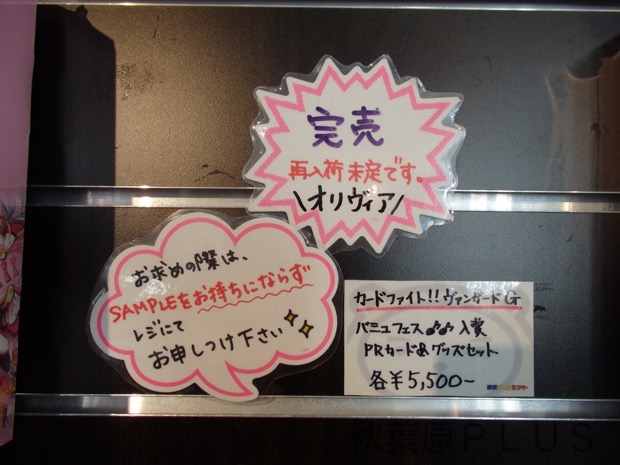 完売
再入荷未定です。
\オリヴィア/
お求めの際は、
SAMPLEをお持ちにならず
レジにて
お申しつけ下さい
カードファイト!! ヴァンガードG
バミュフェス♪♪入賞
PRカード&グッズセット
各¥5,500~
秋葉原PLUS